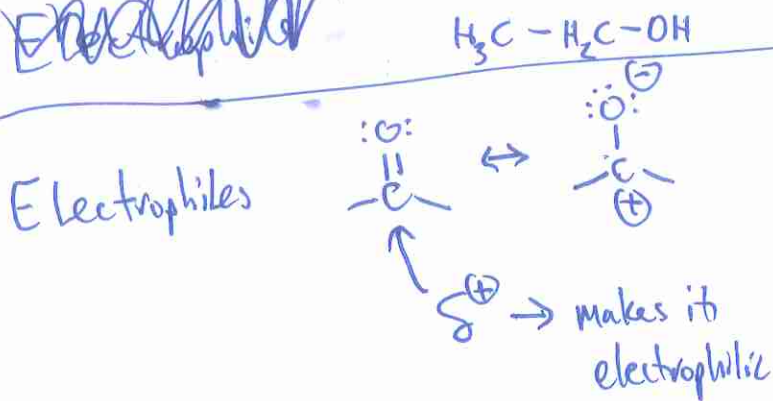 H₃C – H₂C – OH
Electrophiles
:O: ↔ :Ö: ⊖
C C ⊕
δ⊕ → makes it
electrophilic